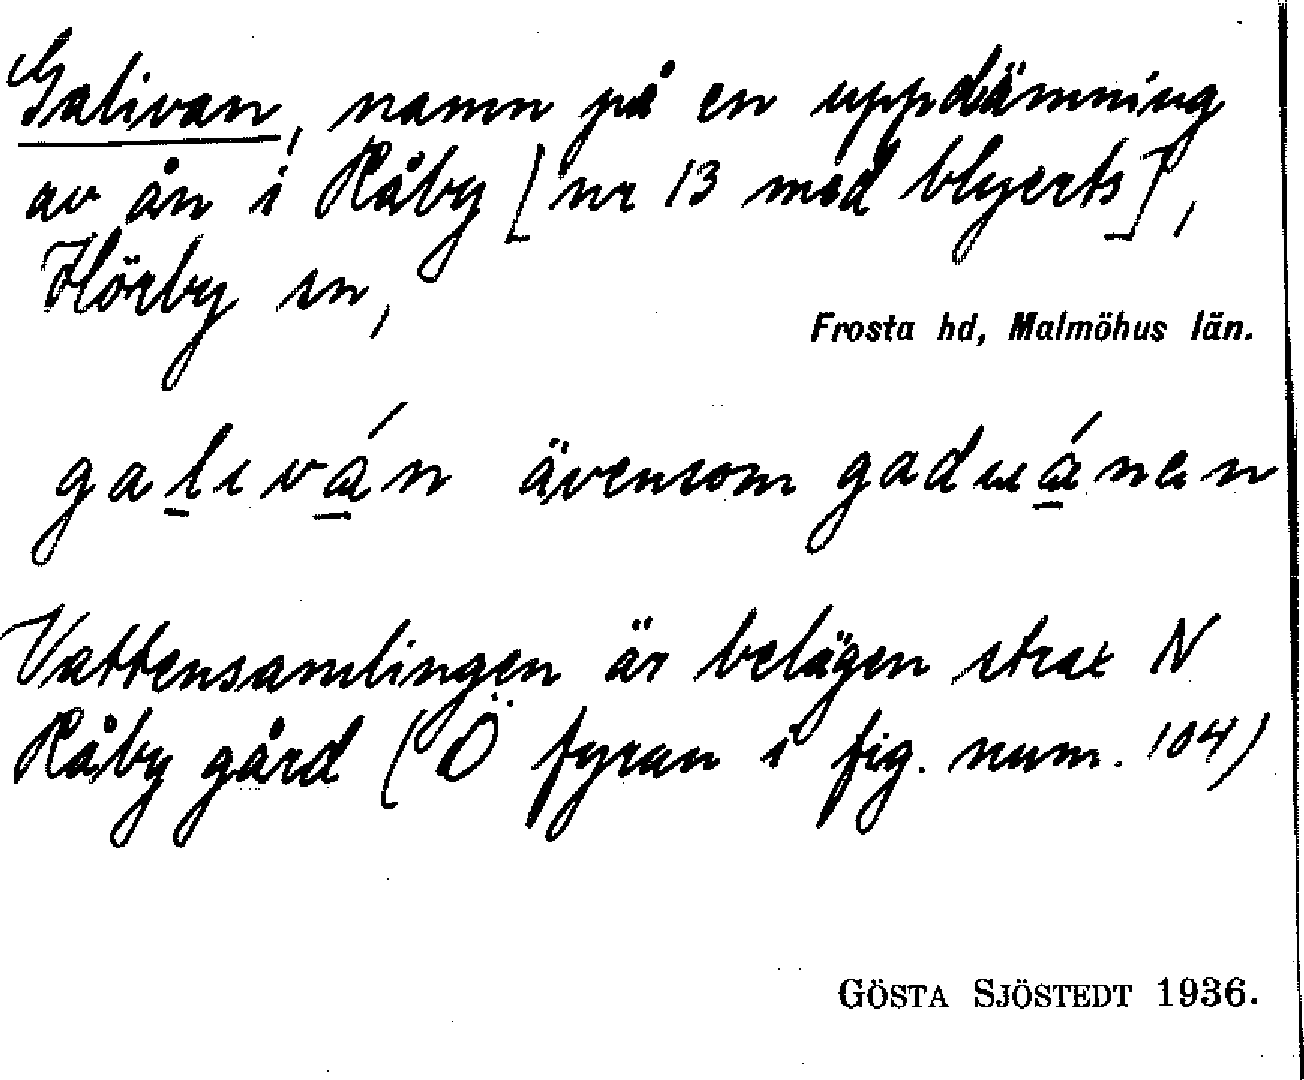 Galivan, namn på en uppdämning
av ån i Råby [nr 13 med blyerts],
Hörby sn,
Frosta hd, Malmöhus län.
galıván ävensom gaduánen
Vattensamlingen är belägen strax N
Råby gård (Ö fyran i fig. num. 104)
GÖSTA SJÖSTEDT 1936.